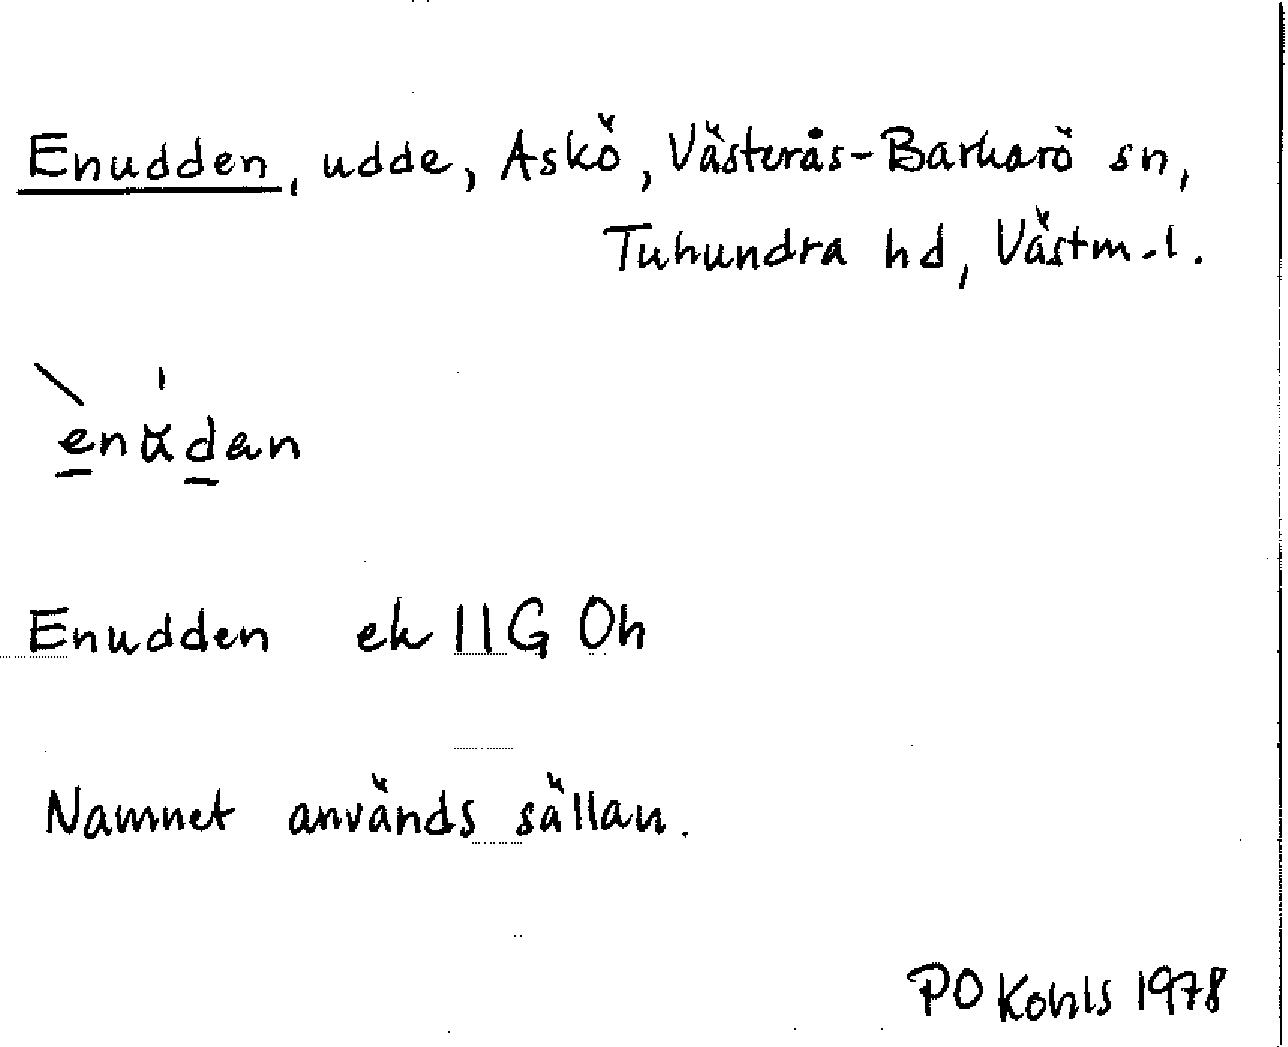 Enudden, udde, Askö, Västerås-Barkarö sn,
Tuhundra hd, Västm.l.
Enudden ek 11G 0h
Namnet används sällan.
PO Kohls 1978